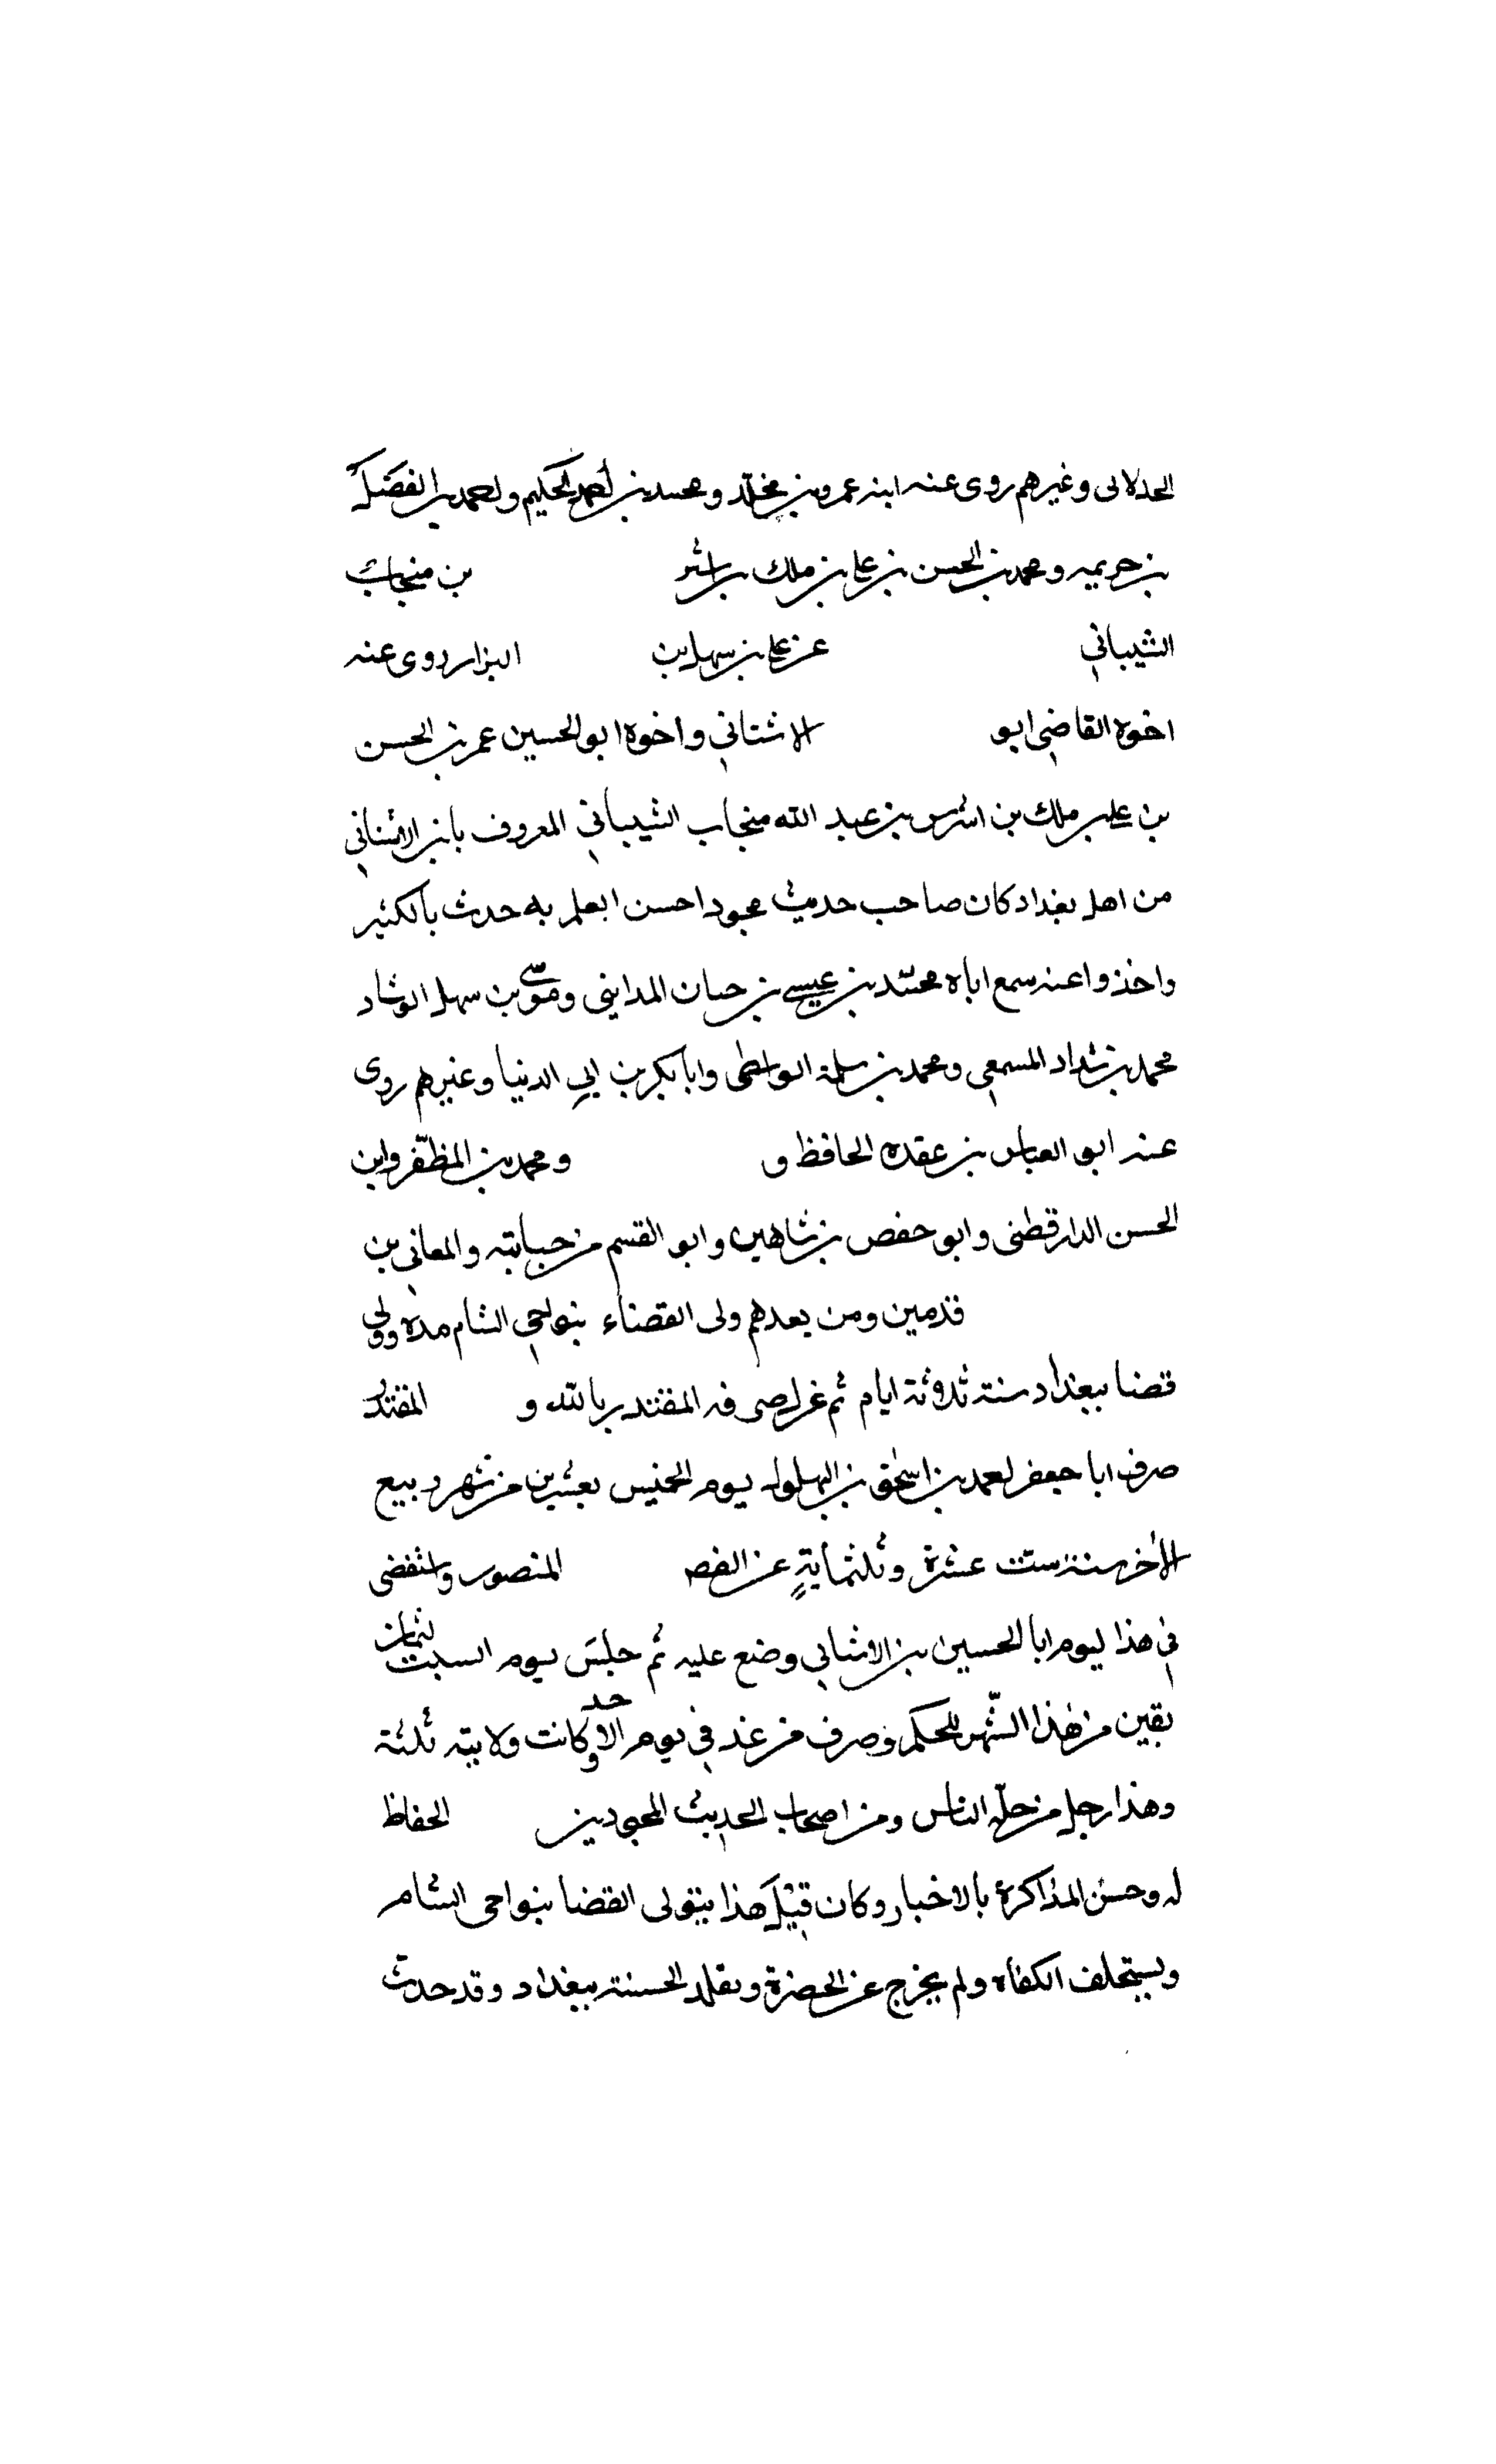 وغيرهم روى عنه ابنه عمرو بن مخلد ومحمد بن احمد الحكيم واحمد بن الفضل
بن خزيمه ومحمد بن الحسن بن علي بن ملك بن اشر بن منجاب
الشيباني عن علي بن سهل بن البزار روى عنه
اخوه القاضي ابو الاشناني واخوه ابو الحسين عمر بن الحسن
بن علي بن ملك بن اشرس بن عبد الله منجاب الشيباني المعروف بابن الاشناني
من اهل بغداد كان صاحب حديث مجودا حسن العلم به حدث بالكثير
واخذوا عنه سمع اباه محمد بن عيسى بن حيان المدايني وموسى بن سهل الوشاد
محمد بن شداد المسمعي ومحمد بن سلمة الواسطى وابا بكر بن ابي الدنيا وغيرهم روى
عنه ابو العباس بن عقده الحافظ و ومحمد بن المظفر وابن
الحسن الدارقطنى وابو حفص بن شاهين وابو القسم من حبابته والمعاني بن
قدمين ومن بعدهم ولى القضاء بنواحي الشام مده وولى
قضا ببغداد سنة ثلاثة ايام ثم المقتدر بالله و المقتدر
صرف ابا جعفر احمد بن اسحق بن البهلول يوم الخميس بعشرين من شهر ربيع
الآخر سنة ست عشرة وثلثماية عن المنصور
في هذا ليوم ابا الحسين بن الاشناني وضع عليه ثم جلس يوم السبت لثمان
بقين من هذا الشهر للحكم وصرف من غد في يوم الاحد وكانت ولايته ثلثة
وهذا رجل من جلة الناس ومن اصحاب الحديث المجودين الحفاظ
له وحسن المذاكرة بالاخبار وكان قبل هذا يتولى القضا بنواحى الشام
ويستخلف الكفاه ولم يخرج عن الحضرة وتقلد الحسبة ببغداد وقد حدث